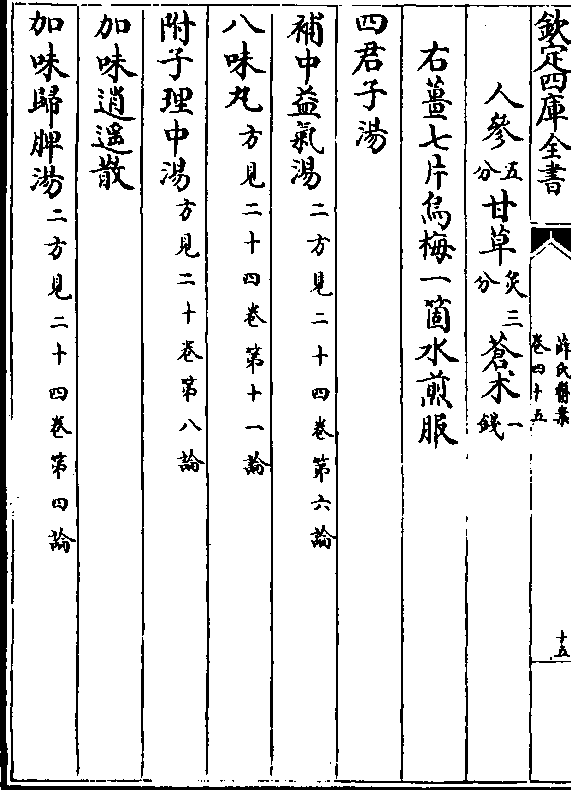 欽定四庫全書
薛氏醫案
卷四十五
十五
人參五分甘草炙三分蒼术一錢
右薑七片烏梅一箇水煎服
四君子湯
補中益氣湯二方見二十四卷第六論
八味丸方見二十四卷第十一論
附子理中湯方見二十卷第八論
加味逍遥散
加味歸脾湯二方見二十四卷第四論